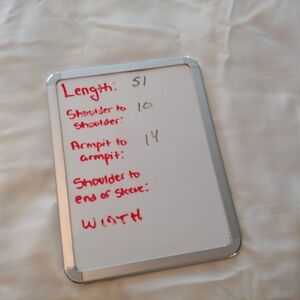 Length: 51
Shoulder to 10
Shoulder:
Armpit to 14
armpit:
Shoulder to
end of Sleeve:
WIDTH